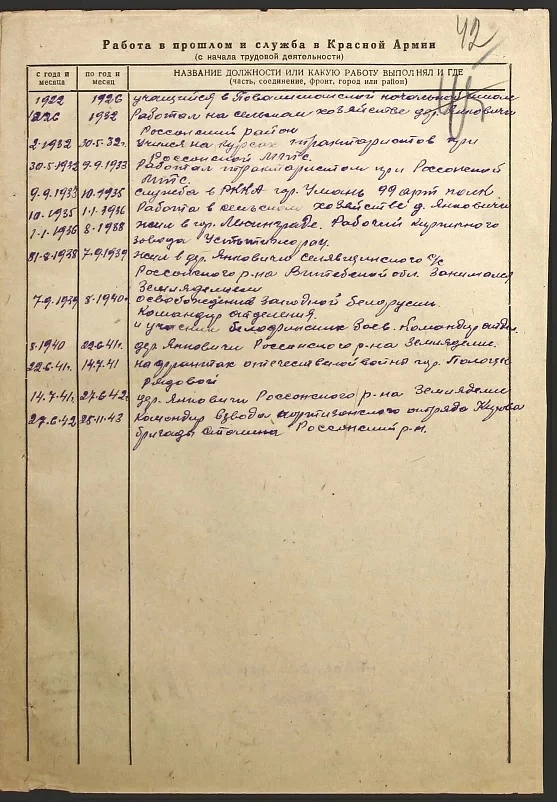 42
Работа в прошлом и служба в Красной Армии
(с начала трудовой деятельности)
с год и месяца
по год и месяц
НАЗВАНИЕ ДОЛЖНОСТИ ИЛИ КАКУЮ РАБОТУ ВЫПОЛНЯЛ И ГДЕ
(часть, соединение, фронт, город или район)
1922 1926 учащийся в начальной школе
1926 1932 Работал на сельском хозяйстве дер. Янковичи
Россонский район
2-1932 30-5-32г. Учился на курсах трактористов при
Россонской МТС.
30-5-1932 9-9-1933 Работал трактористом при Россонской
МТС.
9-9-1933 10-1935 служба в РККА гор. Умань 99 арт полк
10-1935 1-1-1936 Работа в сельском хозяйстве д. Янковичи
1-1-1936 8-1938 жил в гор. Ленинграде. Рабочий
завода
31-8-1938 7-9-1939 жил в дер. Янковичи с/с
Россонского р-на Витебской обл. Занимался
Земляделием
7-9-1939 8-1940 освобождение Западной Белорусии.
Командир отделения
и участий белофинских Командир отдел.
8-1940 22-6-41г. дер. Янковичи Россонского р-на Земляделие.
22-6-41г. 14-7-41 на фронтах отечественной войны гор. Полоцк
Рядовой
14-7-41г. 27-6-42г. дер. Янковичи Россонского р-на Земляделие
27-6-42 25-11-43 Командир взвода партизанского отряда
бригады Сталина Россонский р-н.